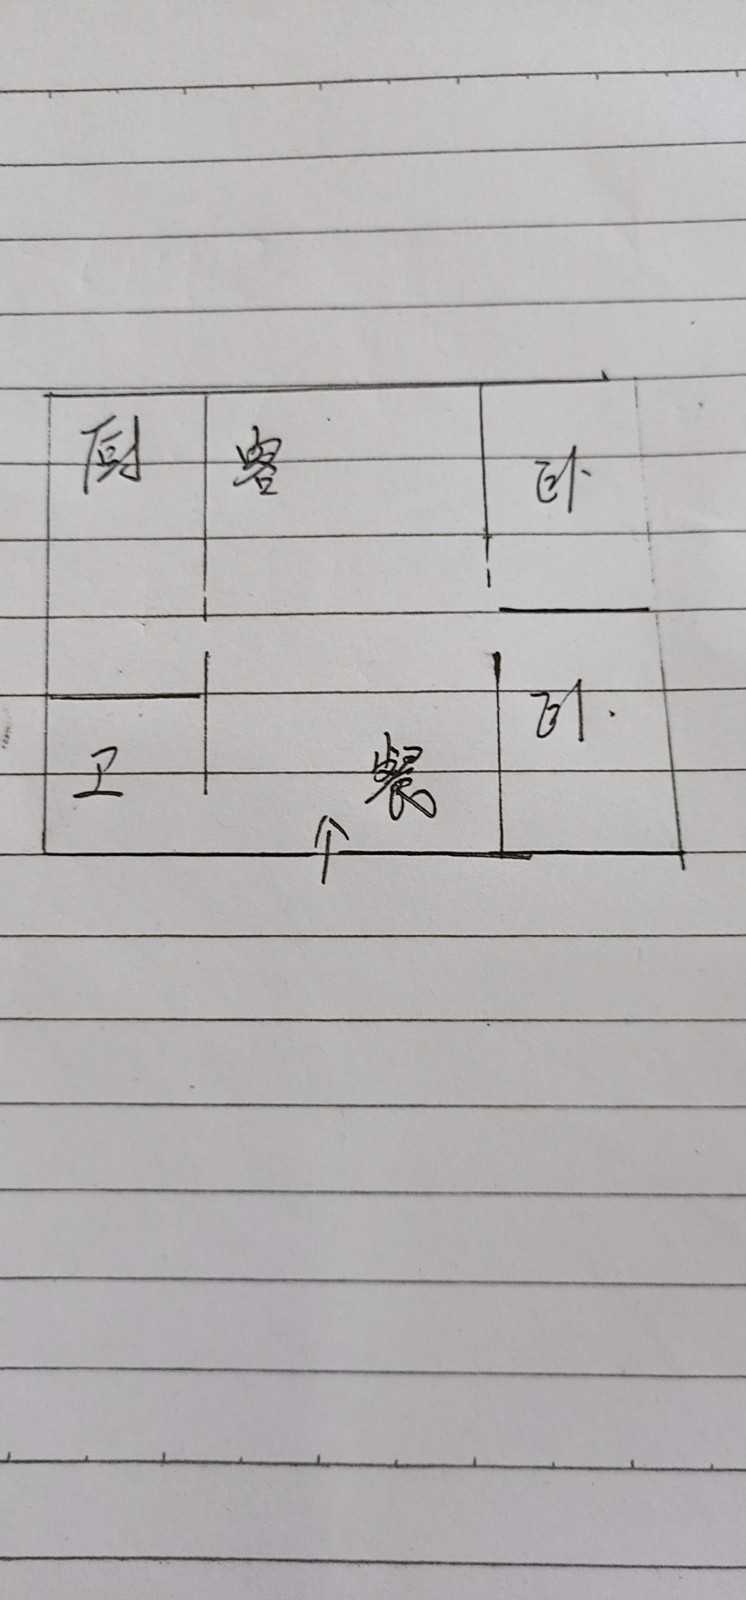 厨 客 卧
卧
卫 餐